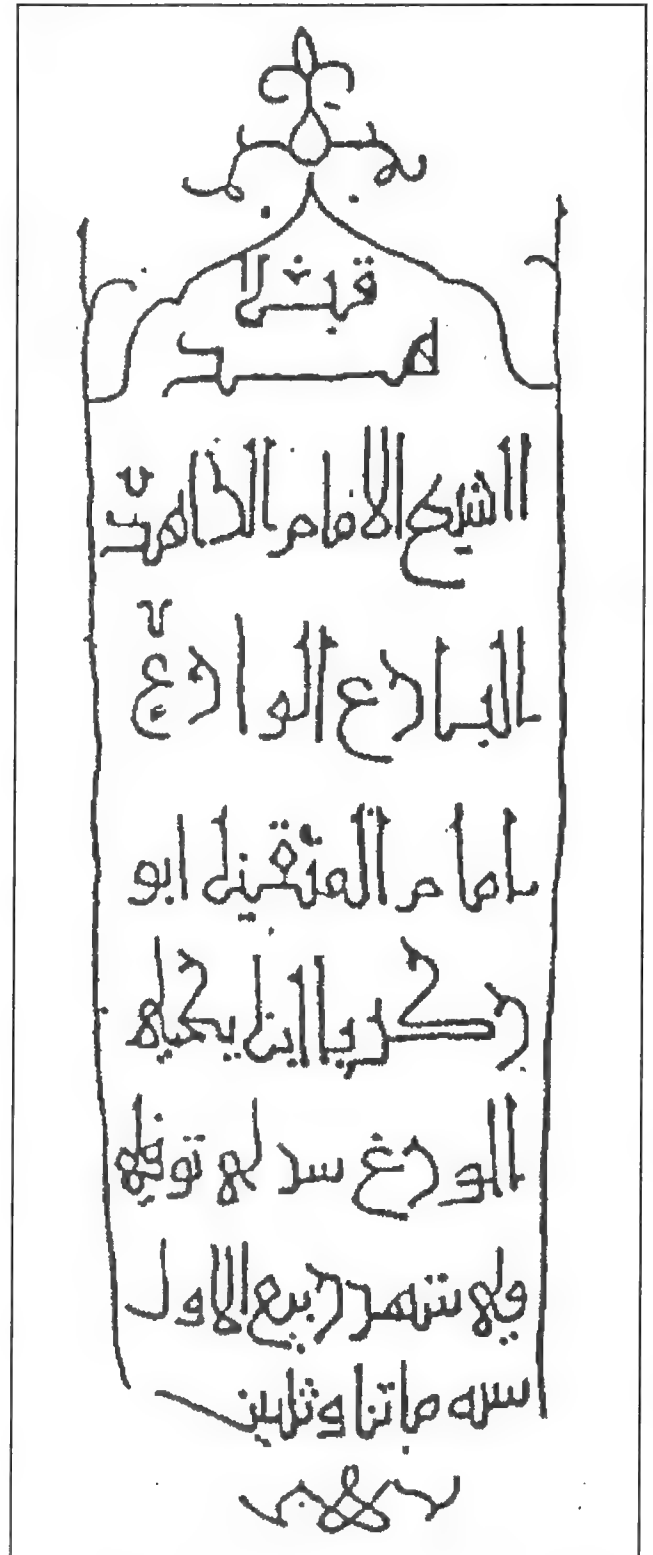 قبر
هد
الشيخ الامام الزاهد
البارع الوارع
امام المتقين ابو
زكريا ابن يحيى
الورع توفي
في شهر ربيع الاول
سنه ماتنا وثلثين